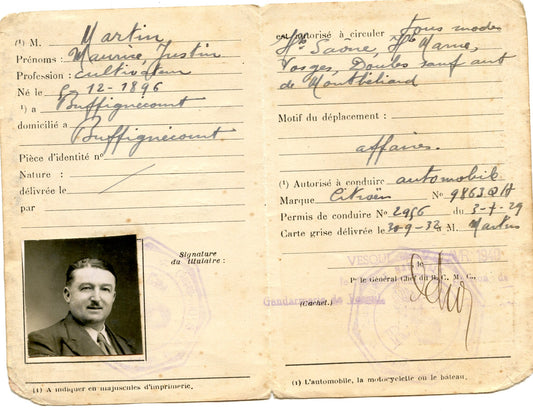 (1) M. Martin
Prénoms : Maurice, Justin
Profession : Cultivateur
Né le 6-12-1896
(1) à Buffignécourt
domicilié à Buffignécourt
Pièce d'identité no
Nature :
délivrée le
par
Signature
du titulaire :
(1) A indiquer en majuscules d'imprimerie.
est autorisé à circuler Tous modes
Hte Saône, Hte Marne,
Vosges, Doubs sauf arrt
de Montbéliard
Motif du déplacement :
affaires.
(1) Autorisé à conduire automobile
Marque Citroën No 9863QH
Permis de conduire No 2956 du 3-7-29
Carte grise délivrée le 30-9-32 à M. Martin
VESOUL
le
Pr le Général Chef du
(Cachet.)
(1) L'automobile, la motocyclette ou le bateau.